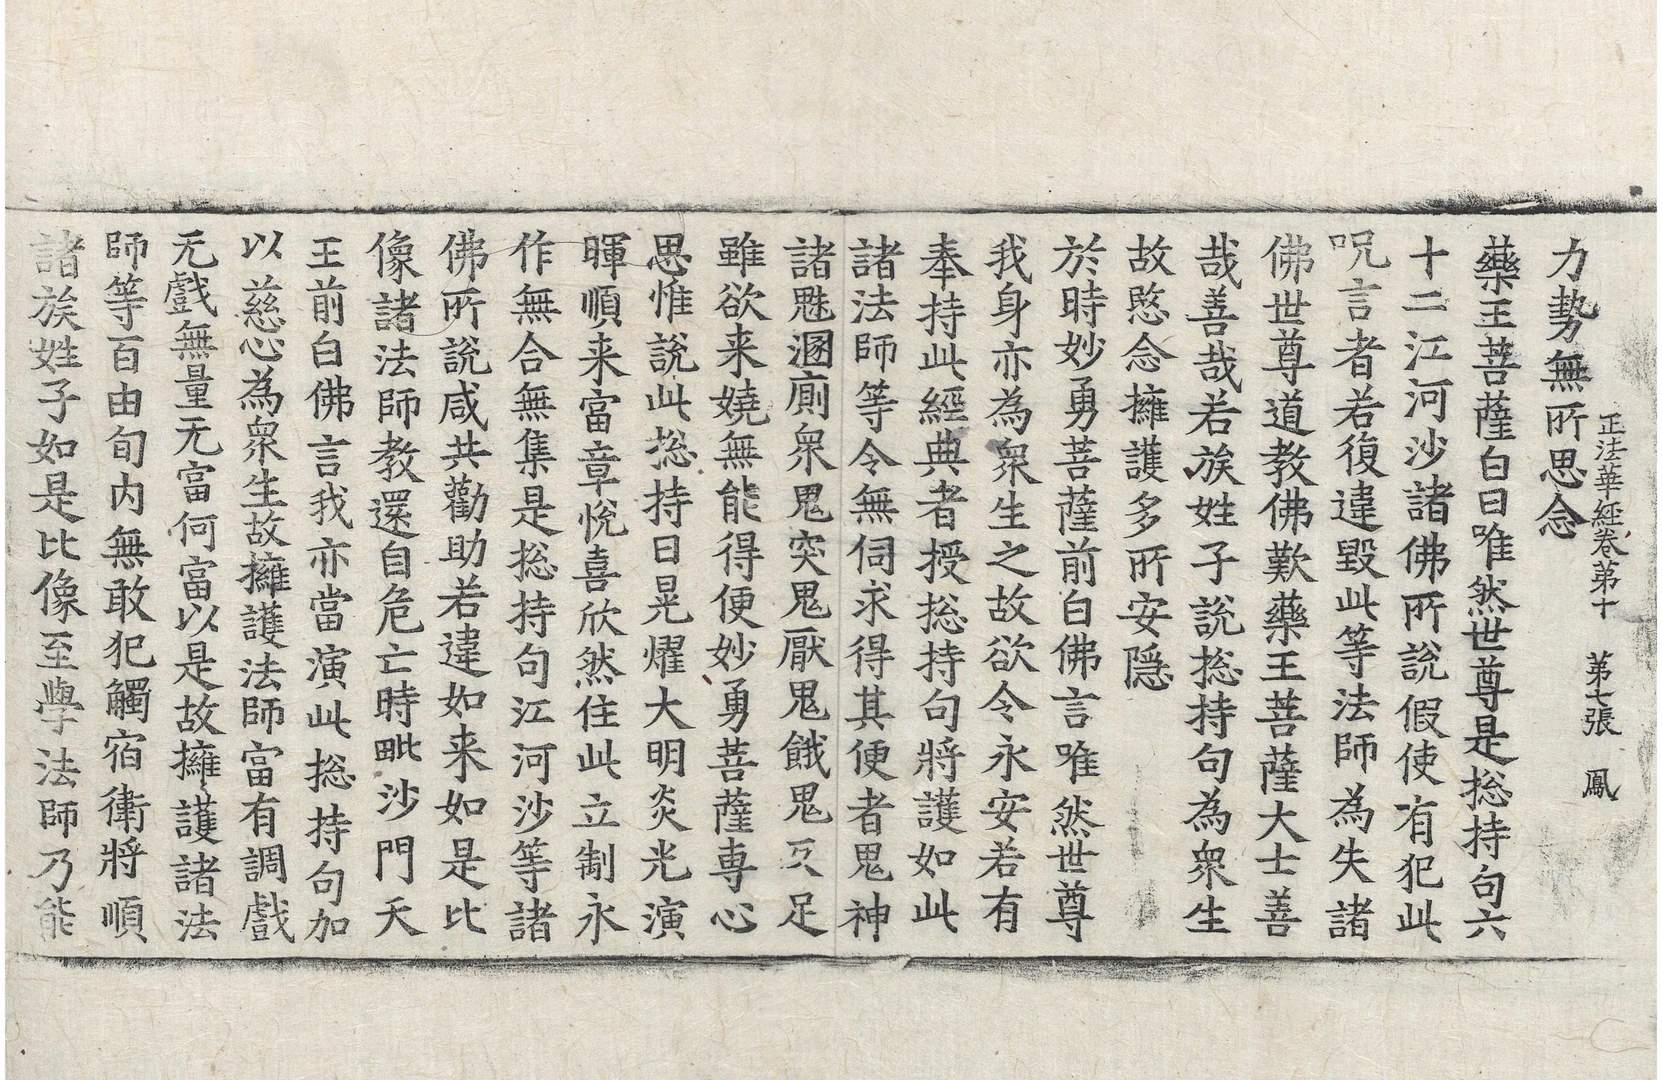 正法華經卷第十 第七張 鳳
力勢無所思念
藥王菩薩白曰唯然世尊是揔持句六
十二江河沙諸佛所說假使有犯此
呪言者若復違毀此等法師為失諸
佛世尊道教佛歎藥王菩薩大士善
哉善哉若族姓子說揔持句為衆生
故愍念擁護多所安隱
於時妙勇菩薩前白佛言唯然世尊
我身亦為衆生之故欲令永安若有
奉持此經典者授揔持句將護如此
諸法師等令無伺求得其便者鬼神
諸魅溷廁衆鬼突鬼厭鬼餓鬼反足
雖欲来嬈無能得便妙勇菩薩專心
思惟說此揔持曰晃燿大明炎光演
暉順来富章悅喜欣然住此立制永
作無合無集是揔持句江河沙等諸
佛所說咸共勸助若違如来如是比
像諸法師教還自危亡時毗沙門天
王前白佛言我亦當演此揔持句加
以慈心為衆生故擁護法師富有調戲
无戲無量无富何富以是故擁護諸法
師等百由旬内無敢犯觸宿衛將順
諸族姓子如是比像至學法師乃能